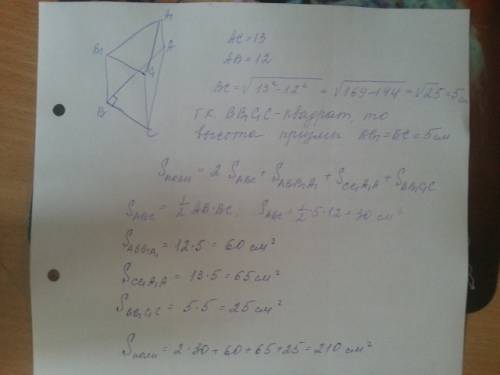 A₁
B₁
A
C₁
B
C
AC=13
AB=12
BC=√13²-12² = √169-144 = √25=5см
т.к. BB₁C₁C-квадрат, то
высота призмы BB₁=BC=5см
Sполн = 2 SABC + SABB₁A₁ + SCC₁A₁A + SBB₁C₁C
SABC = 1/2 AB·BC, SABC=1/2·5·12=30 см²
SABB₁A₁ = 12·5 = 60 см²
SCC₁A₁A = 13·5 = 65см²
SBB₁C₁C = 5·5 = 25 см²
Sполн = 2·30+60+65+25=210 см²